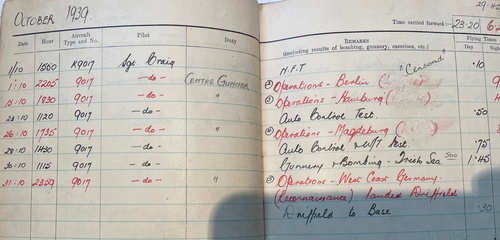 OCTOBER 1939.
Date Hour Aircraft Type and No. Pilot Duty
1/10 1650 K9017 Sgt Craig
1:10 2205 9017 —do— CENTRE GUNNER
15:10 1830 9017 —do— "
25:10 1120 9017 —do—
26:10 1735 9017 —do— "
28:10 1430 9017 —do—
30:10 1115 9017 —do—
31:10 2359 9017 —do— "
Time carried forward:— 23.20
REMARKS
(including results of bombing, gunnery, exercises, etc.)
Flying Times
Day
N.F.T ·10
Operations - Berlin
Operations - Hamburg
Auto Control Test.
Operations - Magdeburg
Auto Control Test. ·75
Gunnery & Bombing - Irish Sea 1·45
Operations - West Coast Germany.
(Reconnaisance) landed Driffield
Driffield to Base ·30